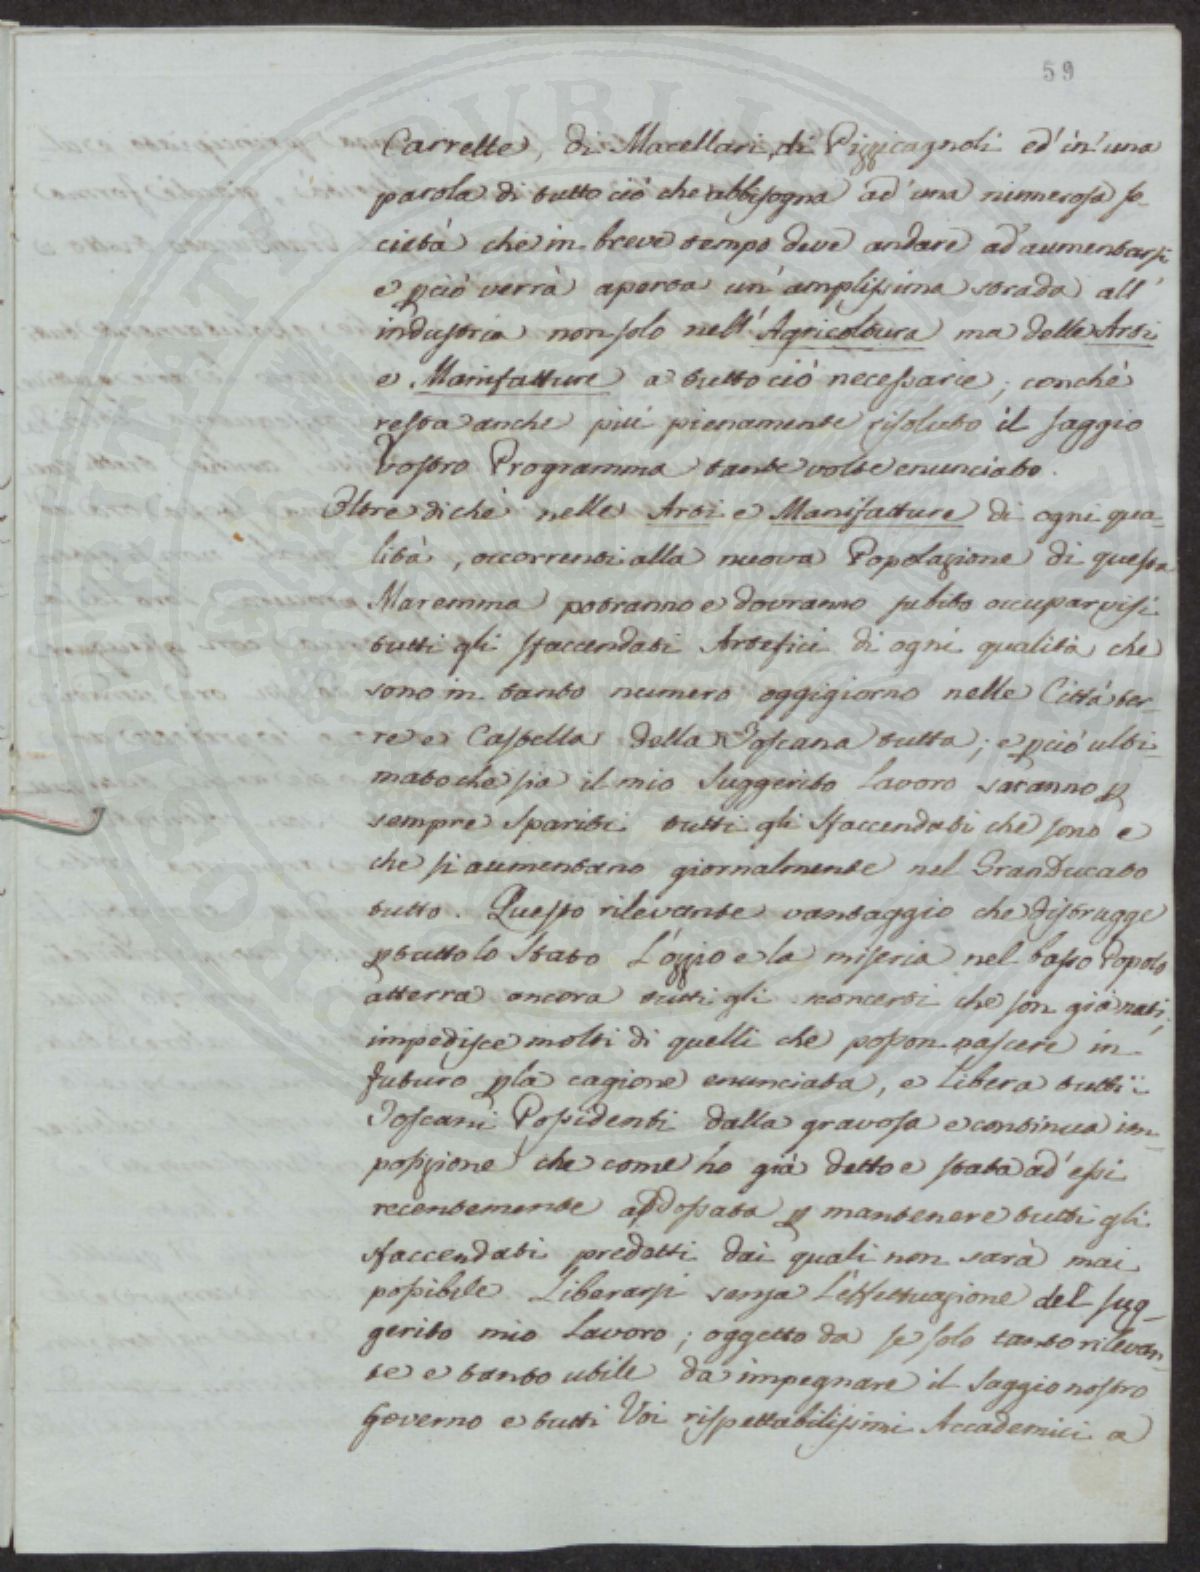 59
Carrette, di Macellari, di Pizzicagnoli ed' in' una
parola di tutto ciò che abbisogna ad' una numerosa so-
cietà che in breve tempo deve andare ad' aumentarsi
e pciò verrà aperta un' amplissima strada all'
industria non solo nell' Agricoltura ma delle Arti
e Manifatture a tutto ciò necessarie; conchè
resta anche più pienamente risoluto il saggio
Vostro Programma tante volte enunciato.
Oltre di chè nelle Arti e Manifatture di ogni qua-
lità, occorrenti alla nuova Popolazione di questa
Maremma potranno e dovranno subito occuparvisi
tutti gli sfaccendati Artefici di ogni qualità che
sono in tanto numero oggigiorno nelle Città ter-
re e Castella della Toscana tutta; e pciò ulti-
mato che sia il mio suggerito Lavoro saranno p
sempre spariti tutti gli sfaccendati che sono e
che si aumentano giornalmente nel GranDucato
tutto. Questo rilevante vantaggio che distrugge
ptutto lo stato L'ozzio e la miseria nel basso Popolo
atterra ancora tutti gli sconcerti che son già nati,
impedisce molti di quelli che posson nascere in
futuro pla cagione enunciata, e Libera tutti i
Toscani Possidenti dalla gravosa e continua im-
posizione che come ho già detto e stata ad' essi
recentemente addossata p mantenere tutti gli
sfaccendati predetti dai quali non sarà mai
possibile Liberarsi senza L'effettuazione del sug-
gerito mio Lavoro; oggetto da se solo tanto rilevan-
te e tanto utile da impegnare il saggio nostro
Governo e tutti Voi rispettabilissimi Accademici a